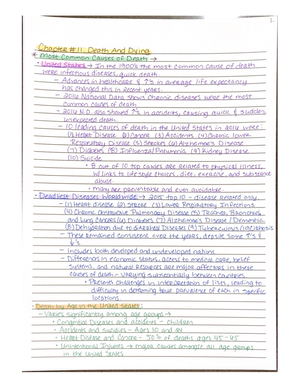 Chapter #11: Death And Dying
Most Common Causes of Death →
• United States → In the 1900's the most common cause of death
were infectious diseases, quick death
– Advances in healthcare & ↑'s in average life expectancy
has changed this in recent years.
– 2016 National Data shows Chronic diseases were the most
common causes of death
– 2016 N.D. also showed ↑'s in accidents, causing quick & sudden,
unexpected death.
– 10 leading causes of death in the United States in 2017 were:
(1) Heart Disease (2) Cancer (3) Accidents (4) Chronic Lower
Respiratory Disease (5) Strokes (6) Alzheimers Disease
(7) Diabetes (8) Influenza/Pneumonia (9) Kidney Disease
(10) Suicide
• 8 out of 10 top causes are related to physical illness,
w/ links to lifestyle choices, diet, exercise, and substance
abuse
• many are preventable and even avoidable
• Deadliest Diseases Worldwide → 2015 top 10 – disease related only
– (1) Heart disease (2) Stroke (3) Lower Respiratory Infections
(4) Chronic Obstructive Pulmonary Disease (5) Trachea, Bronchus,
and Lung Cancers (6) Diabetes (7) Alzheimer's Disease/Dementia
(8) Dehydration due to diarrheal Diseases (9) Tuberculosis (10) Cirrhosis
– These remained consistent over the years, despite some ↑'s
& ↓'s
– Includes both developed and undeveloped nations
– Differences in economic status, access to medical care, belief
systems, and natural resources are major affecters in these
causes of death – varying substantially between countries
• Presents challenges in interpretation of lists, leading to
difficulty in determining true prevalence of each in specific
locations.
Death by Age in the United States:
– Varies significantly among age groups →
• Congenital Diseases and accidents – children
• Accidents and Suicides – Ages 10 and
• Heart Disease and Cancer – 50% of deaths ages 45-65
• Unintentional Injuries → major causes amongst all age groups
in the United States